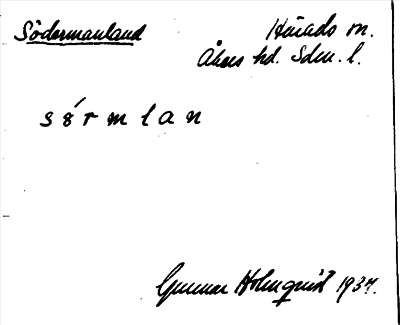 Södermanland
Härads sn.
Åkers hd. Sdm. l.
sörmlan
Gunnar Holmquist 1937.